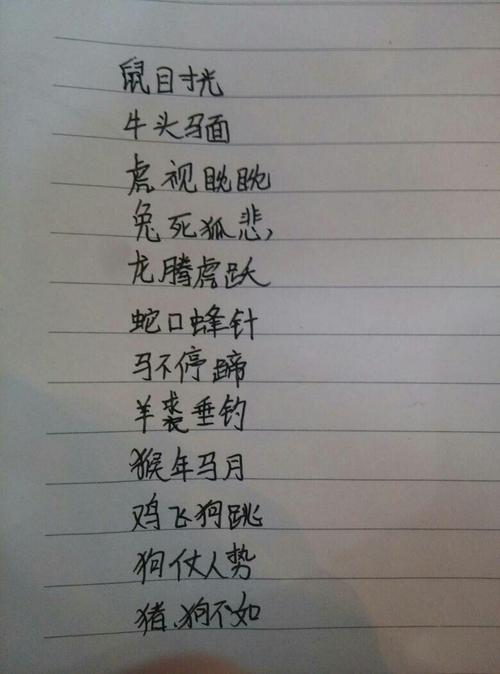 鼠目寸光
牛头马面
虎视眈眈
兔死狐悲,
龙腾虎跃
蛇口蜂针
马不停蹄
羊裘垂钓
猴年马月
鸡飞狗跳
狗仗人势
猪、狗不如